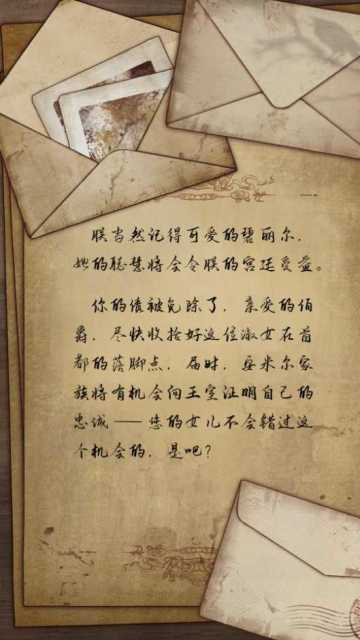 朕当然记得可爱的碧丽尔，
她的聪慧将会令朕的宫廷受益。
你的债被免除了，亲爱的伯
爵，尽快收拾好这位淑女在首
都的落脚点，届时，亚米尔家
族将有机会向王室证明自己的
忠诚——您的女儿不会错过这
个机会的，是吧？